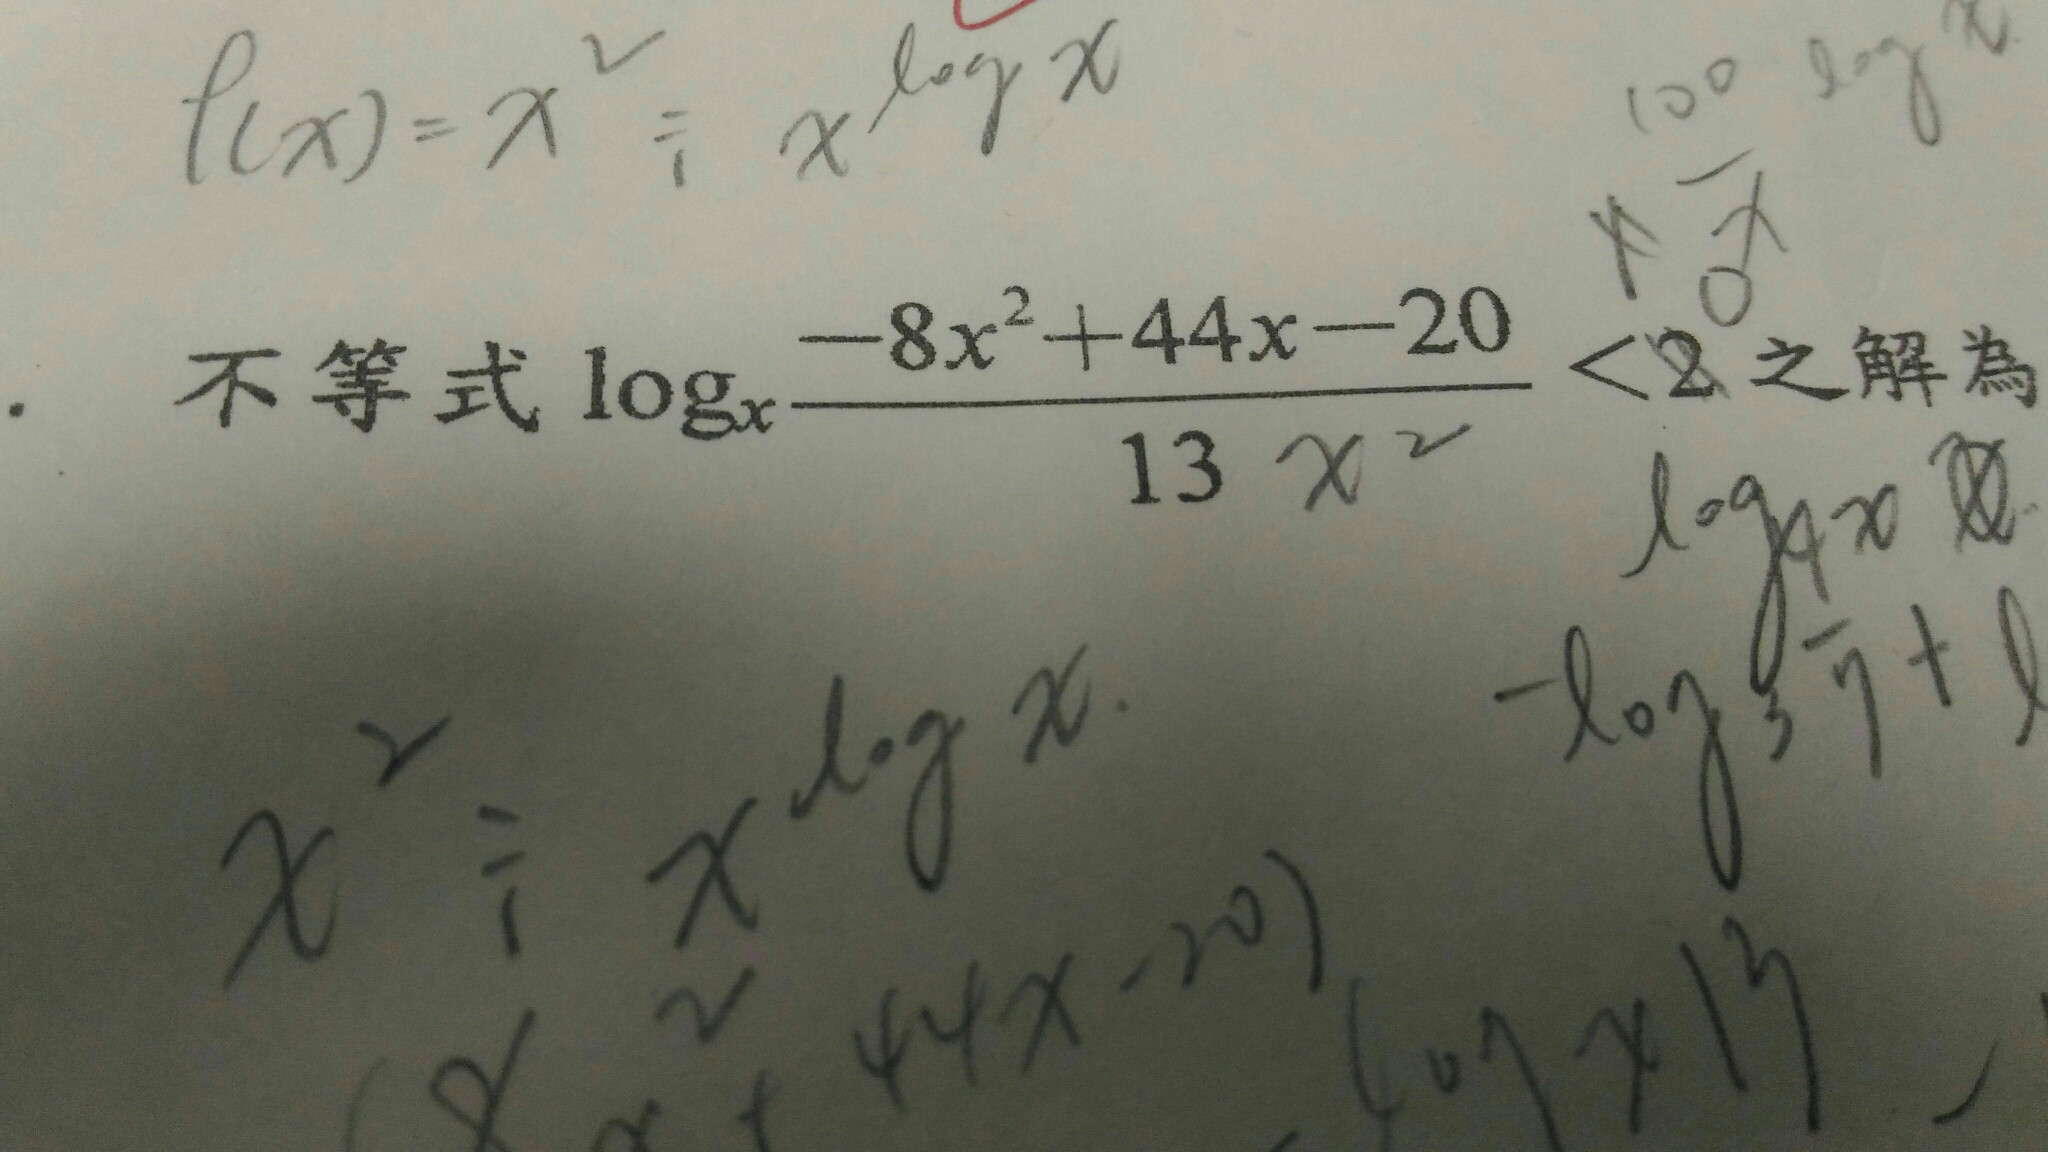 f(x) = x² ÷ x^log x
100 log x
不等式 logₓ (−8x²+44x−20)/13 <2 之解為
x²
log₄ x
-log₃ 7 +
x² ÷ x^log x.
8x² + 44x -20) - log x 13